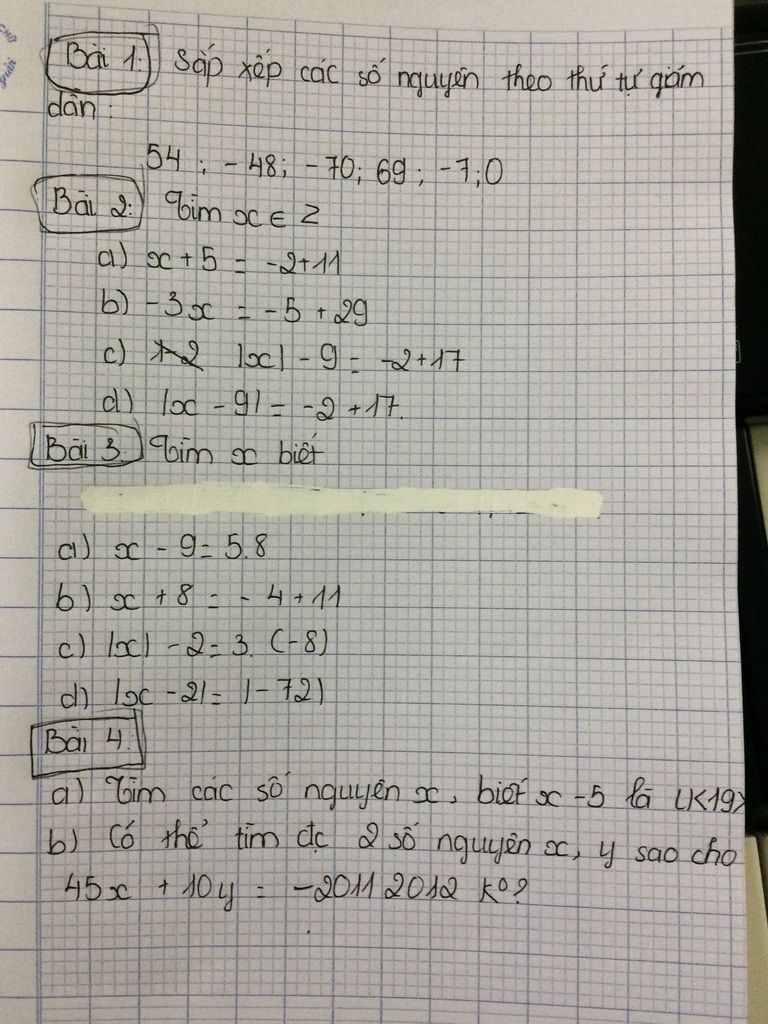 Bài 1: Sắp xếp các số nguyên theo thứ tự giảm
dần:
54 ; -48; -70; 69 ; -7; 0
Bài 2: Tìm x ∈ Z
a) x + 5 = -2+11
b) -3x = -5 + 29
c) |x| - 9 = -2+17
d) |x - 9| = -2 + 17.
Bài 3. Tìm x biết
a) x - 9 = 5.8
b) x + 8 = - 4 + 11
c) |x| - 2 = 3. (-8)
d) |x - 2| = |-72|
Bài 4.
a) Tìm các số nguyên x, biết x - 5 là
b) Có thể tìm đc 2 số nguyên x, y sao cho
45x + 10y = -2011 2012 k°?